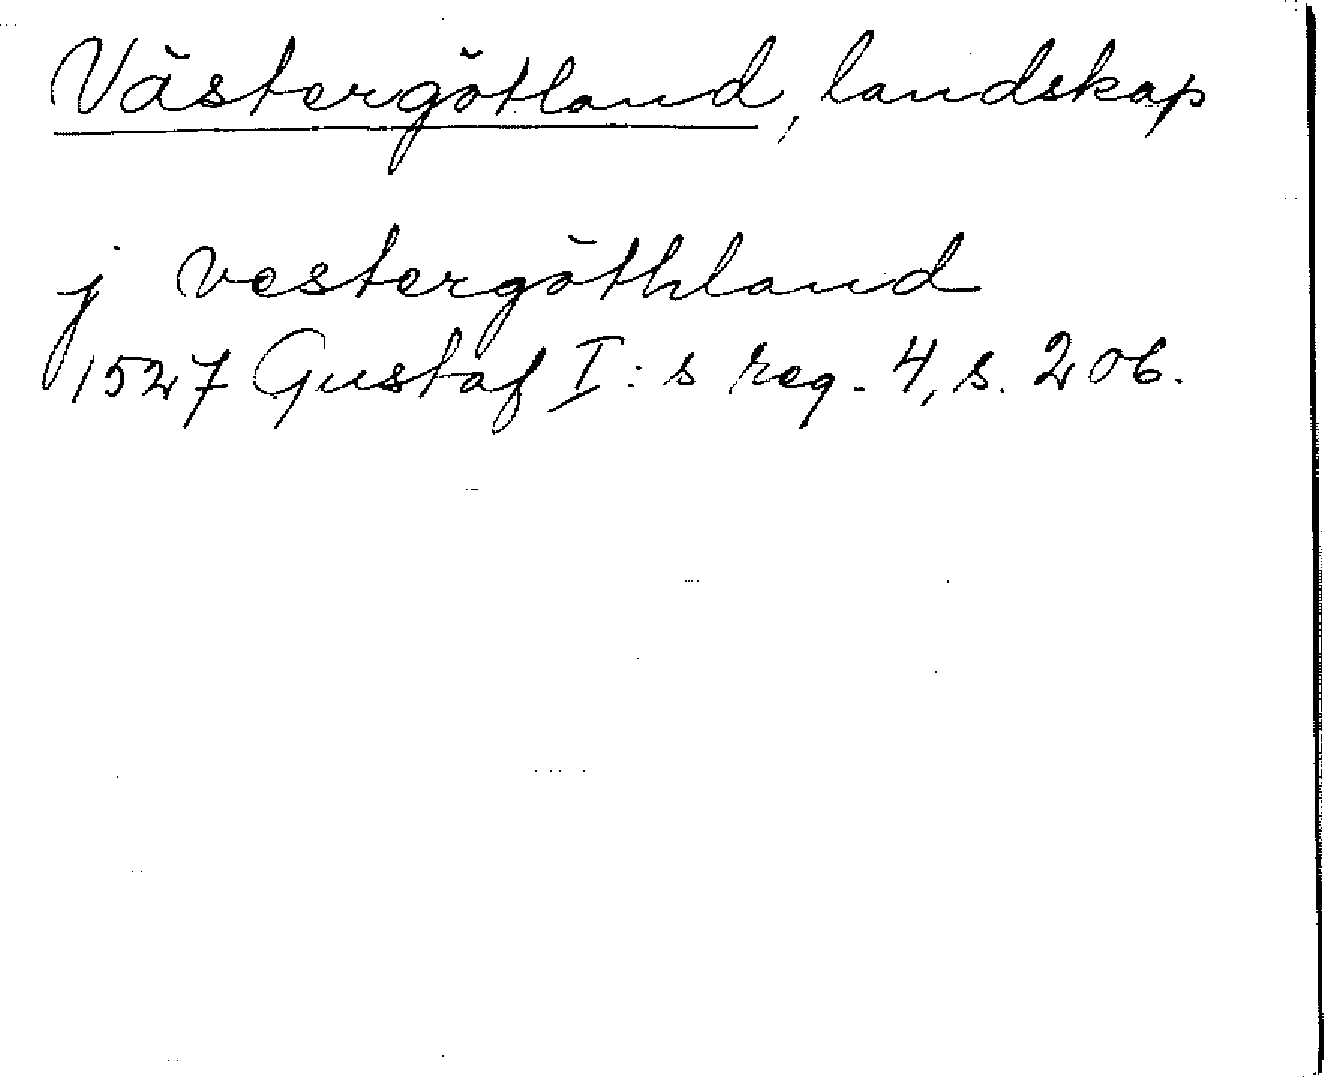 Västergötland, landskap
j vestergöthland
1527 Gustaf I:s reg. 4, s. 206.